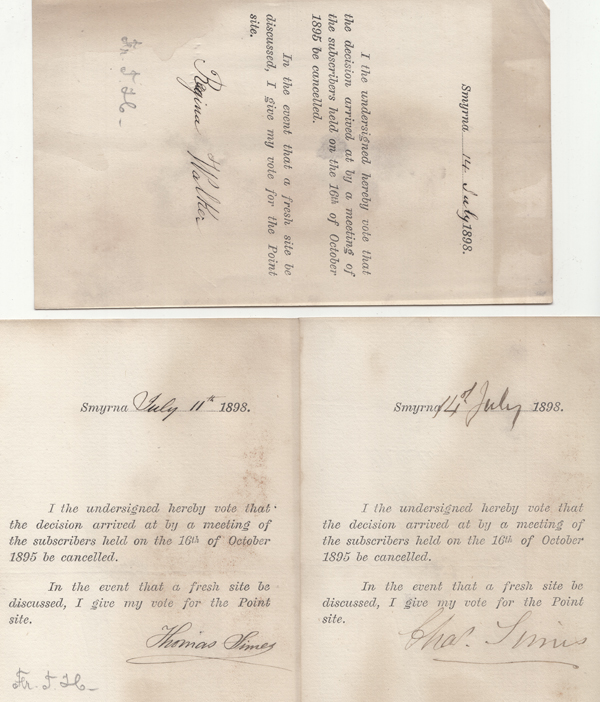 Smyrna 14 July 1898.
I the undersigned hereby vote that
the decision arrived at by a meeting of
the subscribers held on the 16th of October
1895 be cancelled.
In the event that a fresh site be
discussed, I give my vote for the Point
site.
Regina Walker
Fr. T. H.
Smyrna July 11th 1898.
I the undersigned hereby vote that
the decision arrived at by a meeting of
the subscribers held on the 16th of October
1895 be cancelled.
In the event that a fresh site be
discussed, I give my vote for the Point
site.
Thomas Simes
Fr. T. H.
Smyrna 14 July 1898.
I the undersigned hereby vote that
the decision arrived at by a meeting of
the subscribers held on the 16th of October
1895 be cancelled.
In the event that a fresh site be
discussed, I give my vote for the Point
site.
Chas. Simes